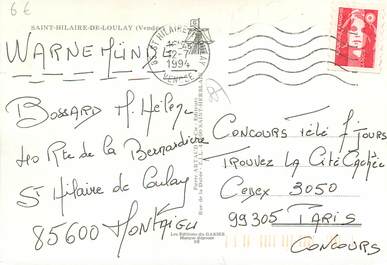 6€
SAINT-HILAIRE-DE-LOULAY (Vendée)
WARNEMÜNDE
ST HILAIRE DE LOULAY
12-7
1994
VENDEE
BOSSARD M. Hélène
Rte de la Bernardière
St Hilaire de Loulay
85600 MONTAIGU
CONCOURS Télé 7 JOURS
TROUVEZ LA CITÉ CACHÉE
CEDEX 3050
99305 PARIS
CONCOURS
Les Editions du GABIER
Marque déposée